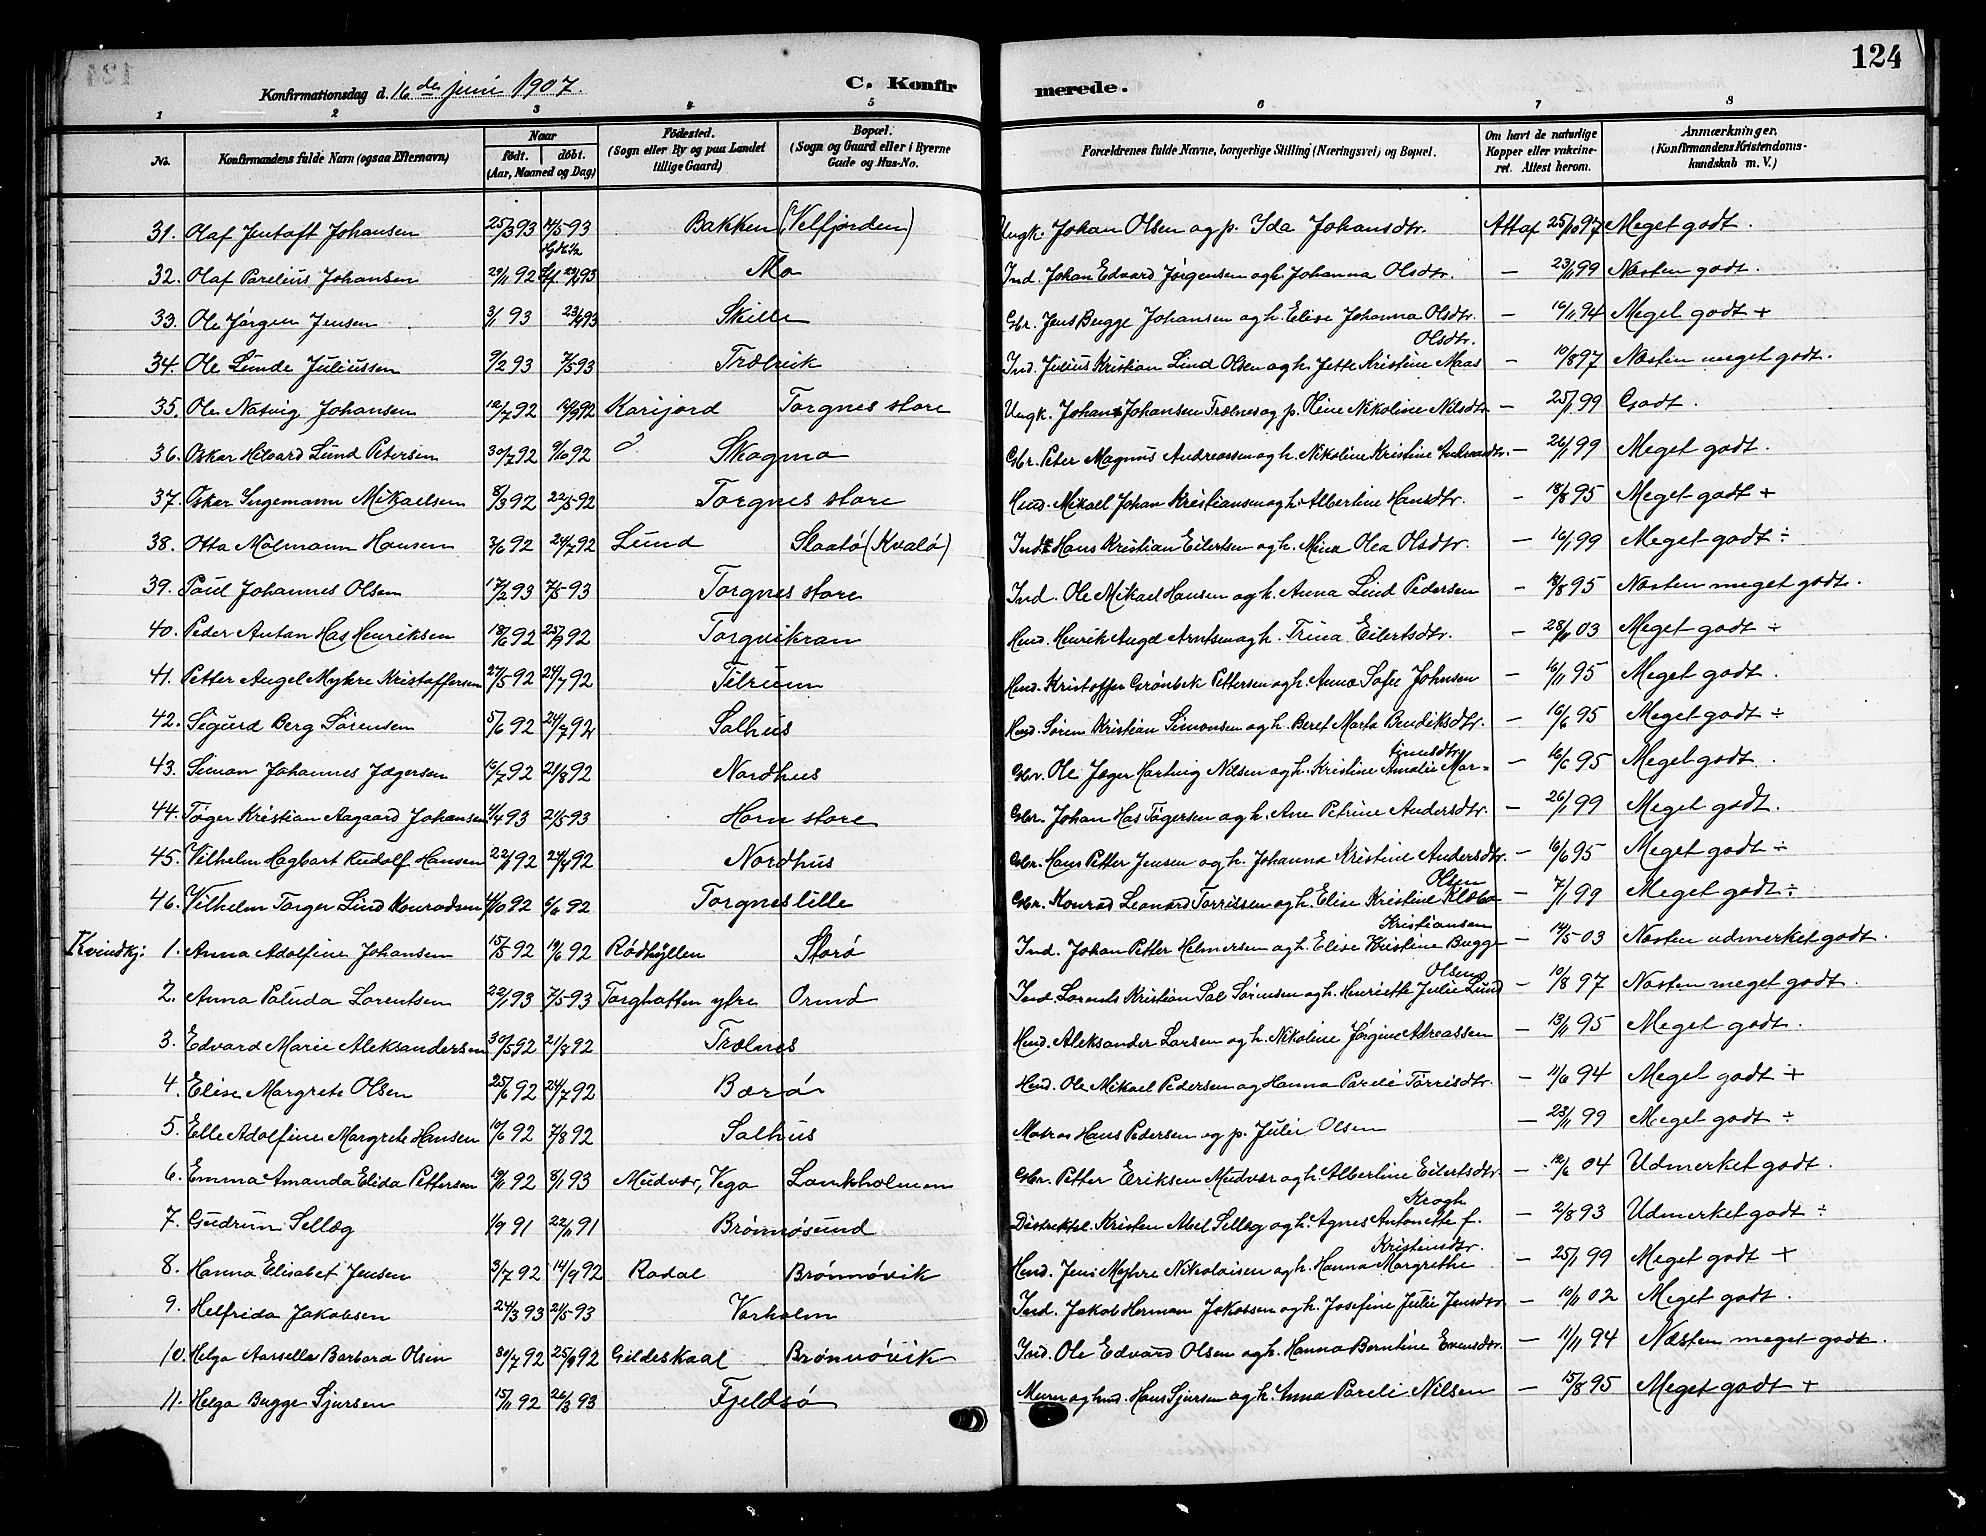 124
Konfirmationsdag d. 16de juni 1907.
C. Konfirmerede.
1 2 3 4 5 6 7 8
No. Konfirmandens fulde Navn (ogsaa Efternavn) Naar født. døbt. (Aar, Maaned og Dag) Fødested. (Sogn eller By og paa Landet tillige Gaard) Bopæl. (Sogn og Gaard eller i Byerne Gade og Hus-No. Forældrenes fulde Navne, borgerlige Stilling (Næringsvei) og Bopæl. Om havt de naturlige Kopper eller vaccineret. Attest herom. Anmærkninger. (Konfirmandens Kristendomskundskab m. V.)
31. Olaf Jentoft Johansen 25/3 93 21/5 93 Bakken (Velfjorden) Ungk. Johan Olsen og p. Ida Johansdtr. Att af 25/10 97 Meget godt.
32. Olaf Parelius Johansen 29/11 92 93 Mo Ind. Johan Edvard Jørgensen og h. Johanna Olsdtr. — 23/11 99 Næsten godt.
33. Ole Jørgen Jensen 3/1 93 23/4 93 Skille Gbr. Jens Bugge Johansen og h. Elise Johanna Olsdtr. — 16/11 94 Meget godt +
34. Ole Lunde Juliussen 9/2 93 7/5 93 Trælvik Ind. Julius Kristian Lund Olsen og h. Jette Kristine Maas Olsdtr. — 10/8 97 Næsten meget godt.
35. Ole Natvig Johansen 10/7 92 92 Karijord Torgnes store Ungk. Johan Johansen Trælnes og p. Oline Nikoline Nilsdtr. — 25/1 99 Godt.
36. Oskar Hilvard Lund Petersen 30/7 92 9/10 92 Skogmo Gbr. Peter Magnus Andreassen og h. Nikoline Kristine — 26/1 99 Meget godt.
37. Oskar Ingemann Mikaelsen 8/3 92 22/5 92 Torgnes store Hmd. Mikael Johan Kristiansen og h. Albertine Hansdtr. — 18/8 95 Meget godt +
38. Otto Molmann Hansen 3/6 92 24/7 92 Lund Slaatø (Kvalø) Ind. Hans Kristian Eilertsen og h. Mina Olea Olsdtr. — 16/1 99 Meget godt ÷
39. Poul Johannes Olsen 17/2 93 7/5 93 Torgnes store Ind. Ole Mikael Hansen og h. Anna Lind Pedersen — 18/8 95 Næsten meget godt.
40. Peder Antan Has Henriksen 18/6 92 25/9 92 Torgvikran Hmd. Henrik Angel Arntsen og h. Trina Eilertsdtr. — 28/11 03 Meget godt ÷
41. Petter Angel Myhre Kristoffersen 27/5 92 24/7 92 Tilrum Hmd. Kristoffer Grönbek Pettersen og h. Anna Sofie Johnsen — 16/11 95 Meget godt.
42. Sigurd Berg Sørensen 5/6 92 24/7 92 Salhus Hmd. Søren Kristian Simonsen og h. Beret Marta Bendiksdtr. — 16/6 95 Meget godt ÷
43. Simon Johannes Jægersen 10/7 92 21/8 92 Nordhus Gbr. Ole Jæger Hartvig Nilsen og h. Kristine Amalie Martinusdtr. — 16/6 95 Meget godt.
44. Tøger Kristian Aagaard Johansen 4/4 93 21/5 93 Horn store Gbr. Johan Has Tøgersen og h. Ane Petrine Andersdtr. — 26/1 99 Meget godt.
45. Vilhelm Hagbart Rudolf Hansen 22/1 92 24/4 92 Nordhus Gbr. Hans Petter Jensen og h. Johanna Kristine Andersdtr. — 16/6 95 Meget godt ÷
46. Vilhelm Torger Lind Konradsen 92 6/6 92 Torgnes lille Gbr. Konrad Leonard Torrissen og h. Elise Kristine Klæbo Olsen — 7/1 99 Meget godt ÷
Kvindkj: 1. Anna Adolfine Johansen 15/5 92 19/6 92 Rødhyllen Storø Ind. Johan Petter Helmersen og h. Elise Kristine Bugge Kristiansen — 14/5 03 Næsten udmerket godt.
2. Anna Paluda Lorentsen 22/1 93 7/5 93 Torghatten ytre Ormø Ind. Lorents Kristian Sal Sørensen og h. Henriette Julie Lund Olsen — 10/8 97 Næsten meget godt.
3. Edvard Marie Aleksandersen 30/5 92 21/8 92 Trælnes Hmd. Aleksander Larsen og h. Nikoline Jørgine Adreassen — 13/11 95 Meget godt.
4. Elise Margrete Olsen 25/6 92 24/7 92 Bærø Hmd. Ole Mikael Pedersen og Hanna Pareli Torrisdtr. — 11/6 94 Meget godt +
5. Elle Adolfine Margrete Hansen 10/6 92 7/8 92 Salhus Matros Hans Pedersen og p. Julie Olsen — 23/11 99 Meget godt ÷
6. Emma Amanda Elida Pettersen 19/11 92 8/1 93 Mudvær, Vega Lamkholmen Gbr. Petter Eriksen Mudvær og h. Albertine Eilertsdtr. — 12/6 04 Udmerket godt.
7. Gudrun Selleg 1/9 91 22/11 91 Brønnøsund Distriktsl. Kristen Abel Selleg og h. Agnes Antonette f. Krogh — 2/8 93 Udmerket godt ÷
8. Hanna Elisabet Jensen 3/7 92 14/9 92 Rodal Brønnøvik Hmd. Jens Myhre Nikolaisen og h. Hanna Margrethe Kristensdtr. — 25/1 99 Meget godt +
9. Helfrida Jakobsen 24/3 93 21/5 93 Vorholm Ind. Jakob Herman Jakobsen og h. Josefine Julie Jensdtr. — 10/11 02 Meget godt.
10. Helga Aarsella Barbara Olsen 30/7 92 25/9 92 Gildeskaal Brønnøvik Ind. Ole Edvard Olsen og h. Hanna Berntine Evensdtr. — 11/11 94 Næsten meget godt.
11. Helga Bugge Sjursen 15/11 92 26/3 93 Fjeldsø Murer og hmd. Hans Sjursen og h. Anna Pareli Nilsen — 15/8 95 Meget godt +